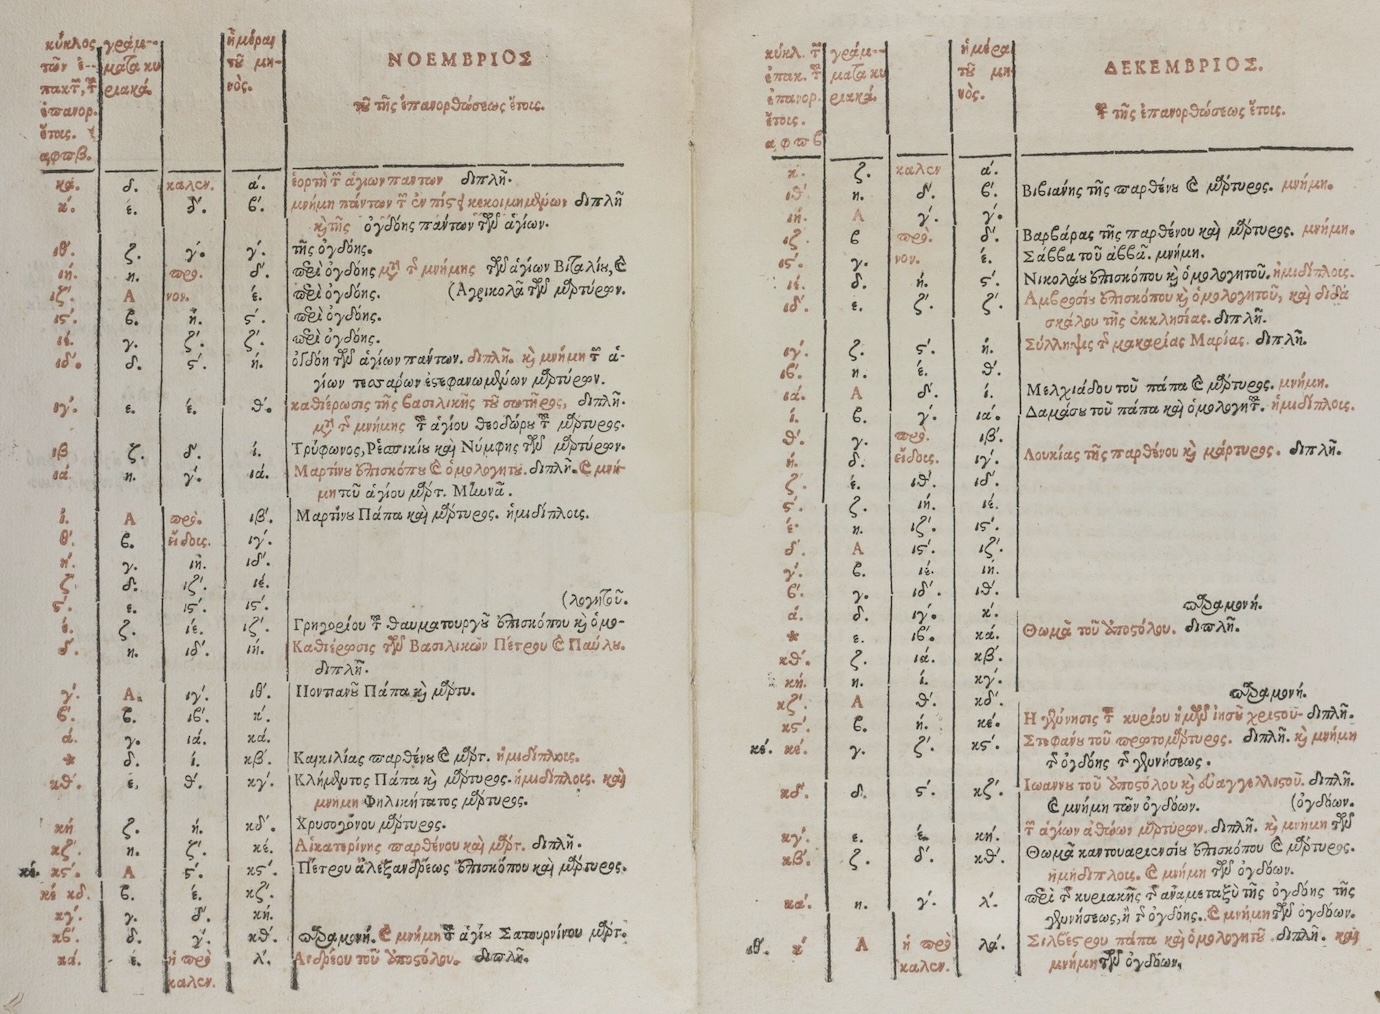 κύκλος γράμ- ἡμέραι
τῶν ἐ- ματα κυ τοῦ μη- ΝΟΕΜΒΡΙΟΣ
πακτ, τ ριακά. νός.
ἐπανορ. τοῦ τῆς ἐπανορθώσεως ἔτους.
ἔτους.
αφπβ.
κα. δ. καλεν. α. ἑορτὴ τῶν ἁγίων πάντων διπλῆ.
κ. ε. δ. β. μνήμη πάντων τῶν ἐν πίστει κεκοιμημένων διπλῆ
καὶ τῆς ὀγδόης πάντων τῶν ἁγίων.
ιθ. ζ. γ. γ. τῆς ὀγδόης.
ιη. η. προ. δ. περὶ ὀγδόης μετὰ τῆς μνήμης τῶν ἁγίων Βιταλίου, καὶ
ιζ. Α νον. ε. περὶ ὀγδόης. (Ἀγρικολᾶ τῶν μαρτύρων.
ις. β. η. ς. περὶ ὀγδόης.
ιε. γ. ζ. ζ. περὶ ὀγδόης.
ιδ. δ. ς. η. ὀγδόη τῶν ἁγίων πάντων. διπλῆ. καὶ μνήμη τῶν ἁ-
γίων τεσσάρων ἐστεφανωμένων μαρτύρων.
ιγ. ε. ε. θ. καθιέρωσις τῆς βασιλικῆς τοῦ σωτῆρος, διπλῆ.
μετὰ τῆς μνήμης τοῦ ἁγίου Θεοδώρου τοῦ μάρτυρος.
ιβ ζ. δ. ι. Τρύφωνος, Ῥεσπικίου καὶ Νύμφης τῶν μαρτύρων.
ια. η. γ. ια. Μαρτίνου ἐπισκόπου καὶ ὁμολογητοῦ. διπλῆ. καὶ μνή-
μη τοῦ ἁγίου μάρτ. Μηνᾶ.
ι. Α προ. ιβ. Μαρτίνου Πάπα καὶ μάρτυρος. ἡμιδίπλοις.
θ. β. εἴδοις. ιγ.
η. γ. ιη. ιδ.
ζ. δ. ιζ. ιε.
ς. ε. ις. ις. (λογητοῦ.
ε. ζ. ιε. ιζ. Γρηγορίου τοῦ θαυματουργοῦ ἐπισκόπου καὶ ὁμο-
δ. η. ιδ. ιη. Καθιέρωσις τῶν Βασιλικῶν Πέτρου καὶ Παύλου.
διπλῆ.
γ. Α. ιγ. ιθ. Ποντιανοῦ Πάπα καὶ μάρτυ.
β. β. ιβ. κ.
α. γ. ια. κα.
* δ. ι. κβ. Καικιλίας παρθένου καὶ μάρτ. ἡμιδίπλοις.
κθ. ε. θ. κγ. Κλήμεντος Πάπα καὶ μάρτυρος. ἡμιδίπλοις. καὶ
μνήμη Φηλικήτατος μάρτυρος.
κη ζ. η. κδ. Χρυσογόνου μάρτυρος.
κζ. η. ζ. κε. Αἰκατερίνης παρθένου καὶ μάρτ. διπλῆ.
κε. κς. Α ς. κς. Πέτρου ἀλεξανδρέως ἐπισκόπου καὶ μάρτυρος.
κε κδ. β. ε. κζ.
κγ. γ. δ. κη.
κβ. δ. γ. κθ. παραμονή. καὶ μνήμη τοῦ ἁγίου Σατουρνίνου μάρτ.
κα. ε. ἡ προ λ. Ἀνδρέου τοῦ ἀποστόλου. διπλῆ.
καλεν.
κύκλ. τ γράμ- ἡμέρα
ἐπακ. τ ματα κυ τοῦ μη ΔΕΚΕΜΒΡΙΟΣ.
ἐπανορ. ριακά. νός.
ἔτους. τοῦ τῆς ἐπανορθώσεως ἔτους.
αφπβ
κ. ζ. καλεν α.
ιθ. η. δ. β. Βιβιανῆς τῆς παρθένου καὶ μάρτυρος. μνήμη.
ιη. Α γ. γ.
ιζ. β προ. δ. Βαρβάρας τῆς παρθένου καὶ μάρτυρος. μνήμη.
ις. γ. νον. ε. Σάββα τοῦ ἀββᾶ. μνήμη.
ιε. δ. η. ς. Νικολάου ἐπισκόπου καὶ ὁμολογητοῦ. ἡμιδίπλοις.
ιδ. ε. ζ. ζ. Ἀμβροσίου ἐπισκόπου καὶ ὁμολογητοῦ, καὶ διδα
σκάλου τῆς ἐκκλησίας. διπλῆ.
ιγ. ζ. ς. η. Σύλληψις τῆς μακαρίας Μαρίας. διπλῆ.
ιβ. η. ε. θ.
ια. Α δ. ι. Μελχιάδου τοῦ πάπα καὶ μάρτυρος. μνήμη.
ι. β. γ. ια. Δαμάσου τοῦ πάπα καὶ ὁμολογητοῦ. ἡμιδίπλοις.
θ. γ. προ. ιβ.
η. δ. εἴδοις. ιγ. Λουκίας τῆς παρθένου καὶ μάρτυρος. διπλῆ.
ζ. ε. ιθ. ιδ.
ς. ζ. ιη. ιε.
ε. η. ιζ. ις.
δ. Α ις. ιζ.
γ. β. ιε. ιη.
β. γ. ιδ. ιθ. παραμονή.
α. δ. ιγ. κ.
* ε. ιβ. κα. Θωμᾶ τοῦ ἀποστόλου. διπλῆ.
κθ. ζ. ια. κβ.
κη. η. ι. κγ.
κζ. Α θ. κδ. παραμονή.
κς. β. η. κε. Ἡ γέννησις τοῦ κυρίου ἡμῶν ἰησοῦ χριστοῦ- διπλῆ.
κε. κε. γ. ζ. κς. Στεφάνου τοῦ πρωτομάρτυρος. διπλῆ. καὶ μνήμη
τῆς ὀγδόης τῆς γεννήσεως.
κδ. δ. ς. κζ. Ἰωάννου τοῦ ἀποστόλου καὶ εὐαγγελιστοῦ. διπλῆ.
καὶ μνήμη τῶν ὀγδόων. (ὀγδόων.
κγ. ε. ε. κη. τῶν ἁγίων ἀθώων μαρτύρων. διπλῆ. καὶ μνήμη τῶν
κβ. ζ. δ. κθ. Θωμᾶ καντουαριενσίου ἐπισκόπου καὶ μάρτυρος.
ἡμιδίπλοις. καὶ μνήμη τῶν ὀγδόων.
κα. η. γ. λ. περὶ τῆς κυριακῆς τῆς ἀναμεταξὺ τῆς ὀγδόης τῆς
γεννήσεως, ἢ τῆς ὀγδόης. καὶ μνήμη τῶν ὀγδόων.
ιθ. κ Α ἡ προ λα. Σιλβέστρου πάπα καὶ ὁμολογητοῦ διπλῆ. καὶ
καλεν. μνήμη τῶν ὀγδόων.